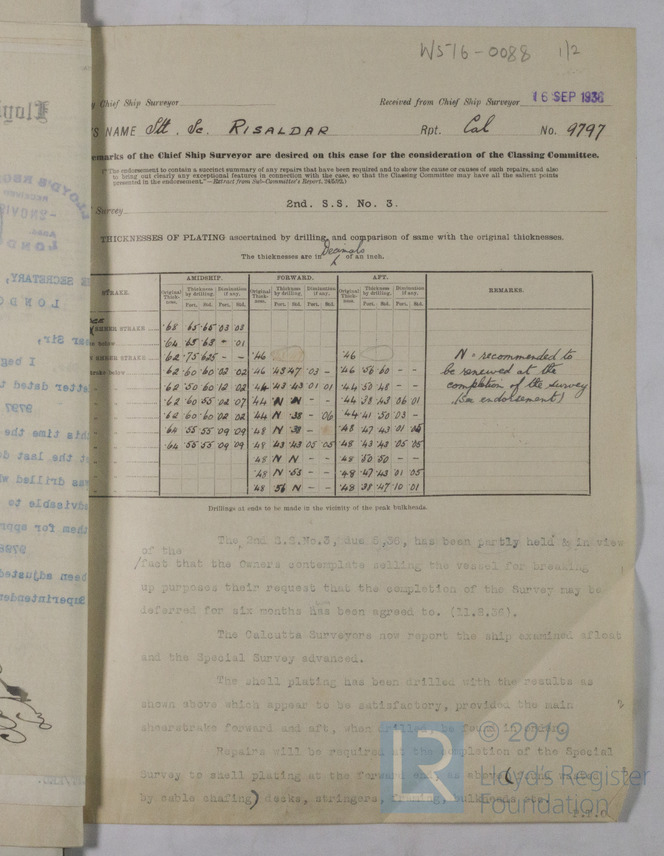 WS76-0088 1/2
Chief Ship Surveyor Received from Chief Ship Surveyor 16 SEP 1936
'S NAME Stl. Sc. RISALDAR Rpt. Cal No. 9797
emarks of the Chief Ship Surveyor are desired on this case for the consideration of the Classing Committee.
("The endorsement to contain a succinct summary of any repairs that have been required and to show the cause or causes of such repairs, and also
to bring out clearly any exceptional features in connection with the case, so that the Classing Committee may have all the salient points
presented in the endorsement."—Extract from Sub-Committee's Report,
Survey 2nd. S.S. No. 3.
THICKNESSES OF PLATING ascertained by drilling, and comparison of same with the original thicknesses.
The thicknesses are in Decimals of an inch.
STRAKE. AMIDSHIP. FORWARD. AFT. REMARKS.
Original Thickness. Thickness by drilling. Diminution if any. Original Thickness. Thickness by drilling. Diminution if any. Original Thickness. Thickness by drilling. Diminution if any.
Port. Stbd. Port. Stbd. Port. Stbd. Port. Stbd. Port. Stbd. Port. Stbd.
SHEER STRAKE .68 .65 .65 .03 .03
below .64 .65 .63 - .01
SHEER STRAKE .62 .75 .625 - - .46 .46
trake below .62 .60 .60 .02 .02 .46 .43 .47 .03 - .46 .50 .60 - -
.62 .50 .60 .12 .02 .44 .43 .43 .01 .01 .44 .50 .48 - -
.62 .60 .55 .02 .07 .44 N N - - .44 .38 .43 .06 .01
.62 .60 .60 .02 .02 .44 N .38 - .06 .44 .41 .50 .03 -
.64 .55 .55 .09 .09 .48 N .38 - .48 .47 .43 .01 .05
.64 .55 .55 .09 .09 .48 .43 .43 .05 .05 .48 .43 .43 .05 .05
.48 N N - - .48 .50 .50 - -
.48 N .53 - - .48 .47 .43 .01 .05
.48 .56 N - - .48 .38 .47 .10 .01
N = recommended to
be renewed at the
completion of the survey
(see endorsement)
Drillings at ends to be made in the vicinity of the peak bulkheads.
The 2nd S.S.No.3, due 8,36, has been partly held & in view
of the
fact that the Owners contemplate selling the vessel for breaking
up purposes their request that the completion of the Survey may be
deferred for six months has been agreed to. (11.8.36).
The Calcutta Surveyors now report the ship examined afloat
and the Special Survey advanced.
The shell plating has been drilled with the results as
shown above which appear to be satisfactory, provided the main
sheerstrake forward and aft, when drilled, be found in order.
Repairs will be required at the completion of the Special
Survey to shell plating at the forward end, as above
by cable chafing) decks, stringers, framing, bulkheads etc.
P.T.O
© 2019
Lloyd's Register
Foundation
LR